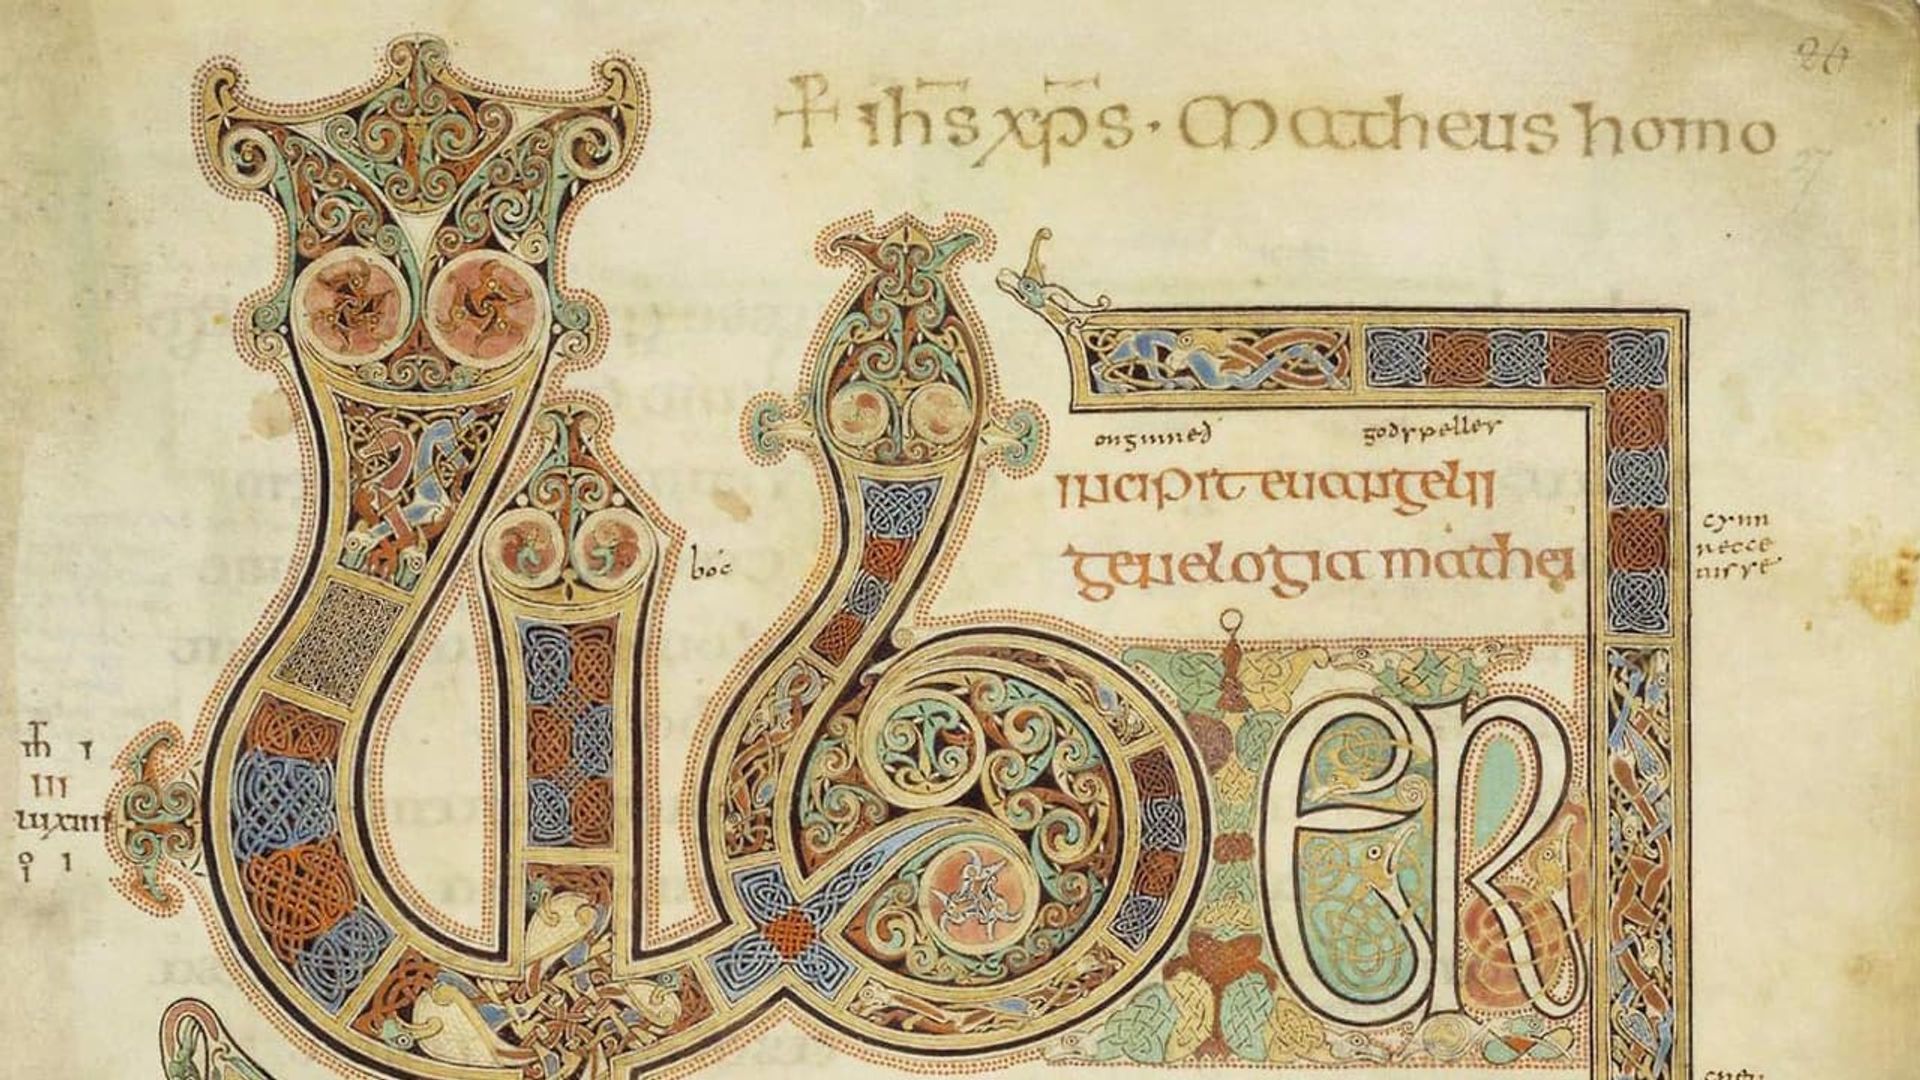 26
27
☧ ih̅s xp̅s · Matheus homo
onginneð godspelles
incipit euangelii
genelogia mathei
cynn
recce
nisse
bóc
LIBER
m̅ i
iii